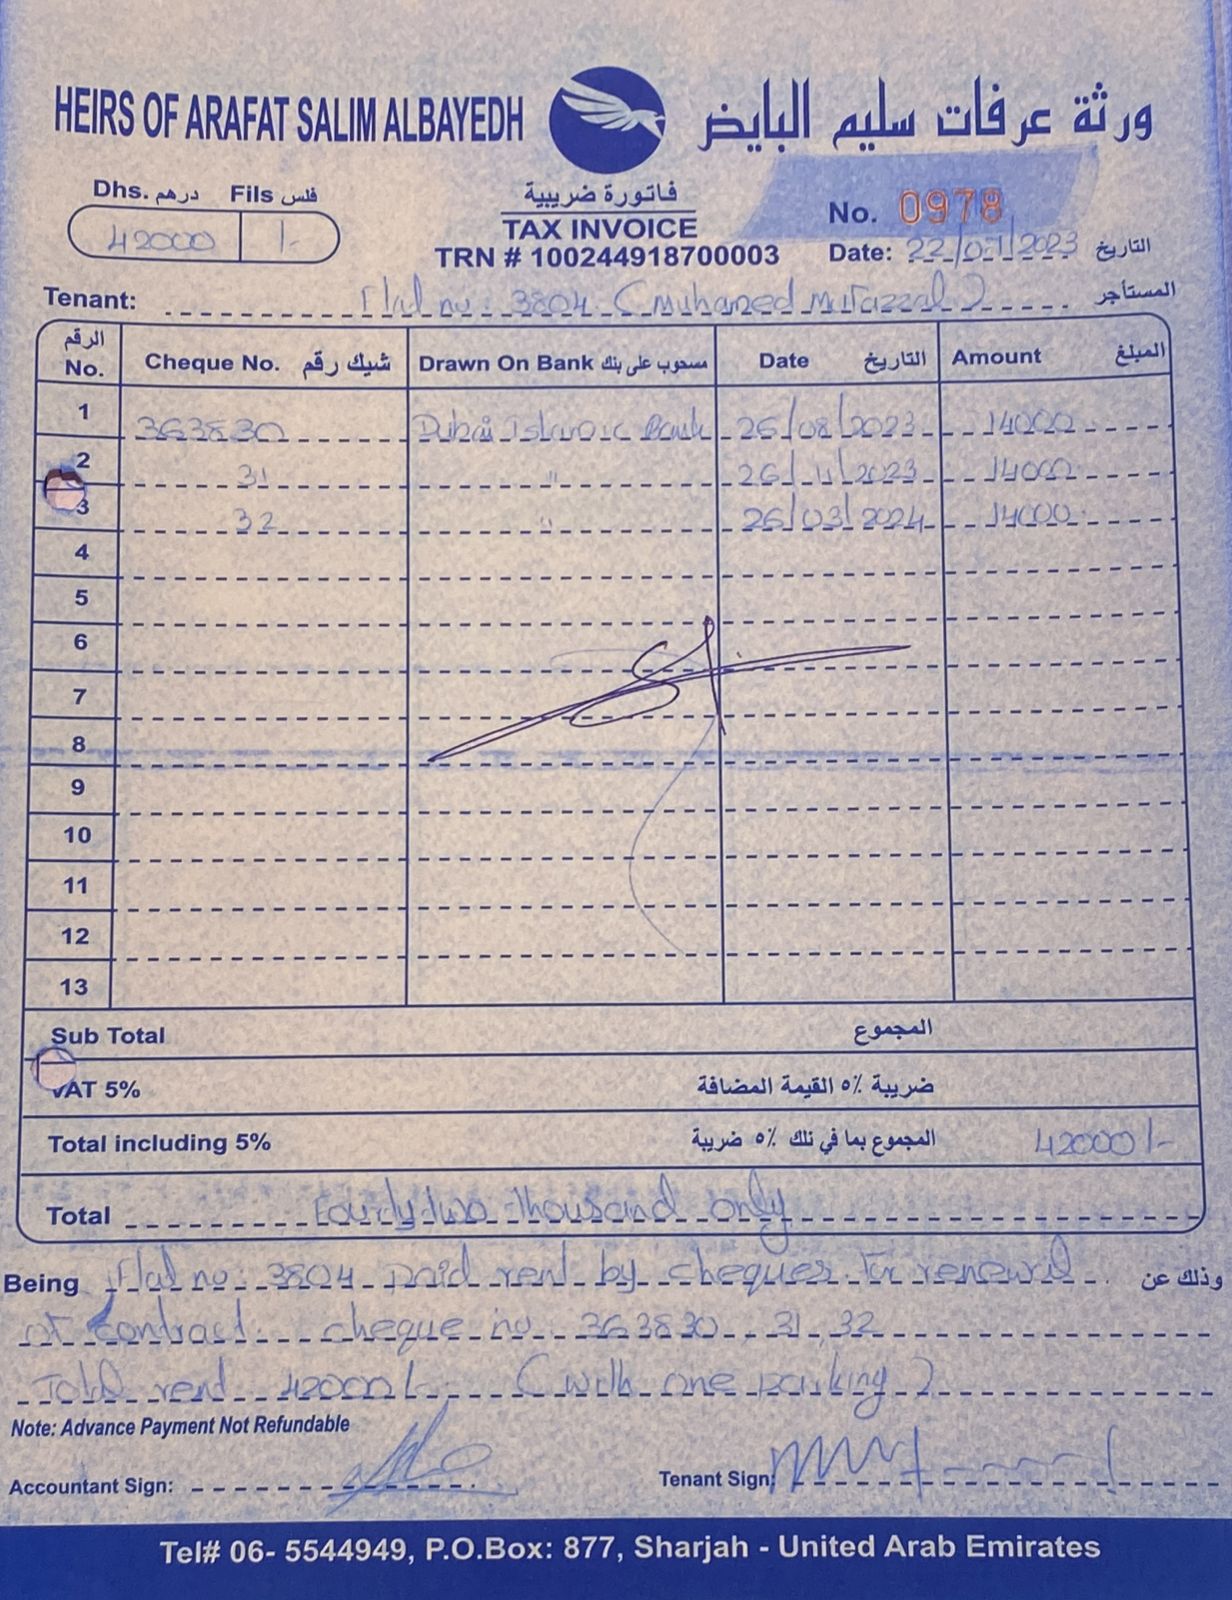 HEIRS OF ARAFAT SALIM ALBAYEDH ورثة عرفات سليم البايض
Dhs. درهم Fils فلس
42000 /-
فاتورة ضريبية
TAX INVOICE
TRN # 100244918700003
No. 0978
Date: 22/07/2023 التاريخ
Tenant: Flat no: 3804 (Muhamed Mufazzal) المستأجر
الرقم No. Cheque No. شيك رقم Drawn On Bank مسحوب على بنك Date التاريخ Amount المبلغ
1 363830 Dubai Islamic Bank 26/08/2023 14000
2 31 " 26/11/2023 14000
3 32 " 26/03/2024 14000
4
5
6
7
8
9
10
11
12
13
Sub Total المجموع
VAT 5% ضريبة ٥٪ القيمة المضافة
Total including 5% المجموع بما في تلك ٥٪ ضريبة 42000/-
Total Fourty two thousand only
Being Flat no: 3804 paid rent by cheques for renewal وذلك عن
of contract cheque no 363830, 31, 32
Total rent 42000/- (with one parking)
Note: Advance Payment Not Refundable
Accountant Sign: Tenant Sign:
Tel# 06- 5544949, P.O.Box: 877, Sharjah - United Arab Emirates